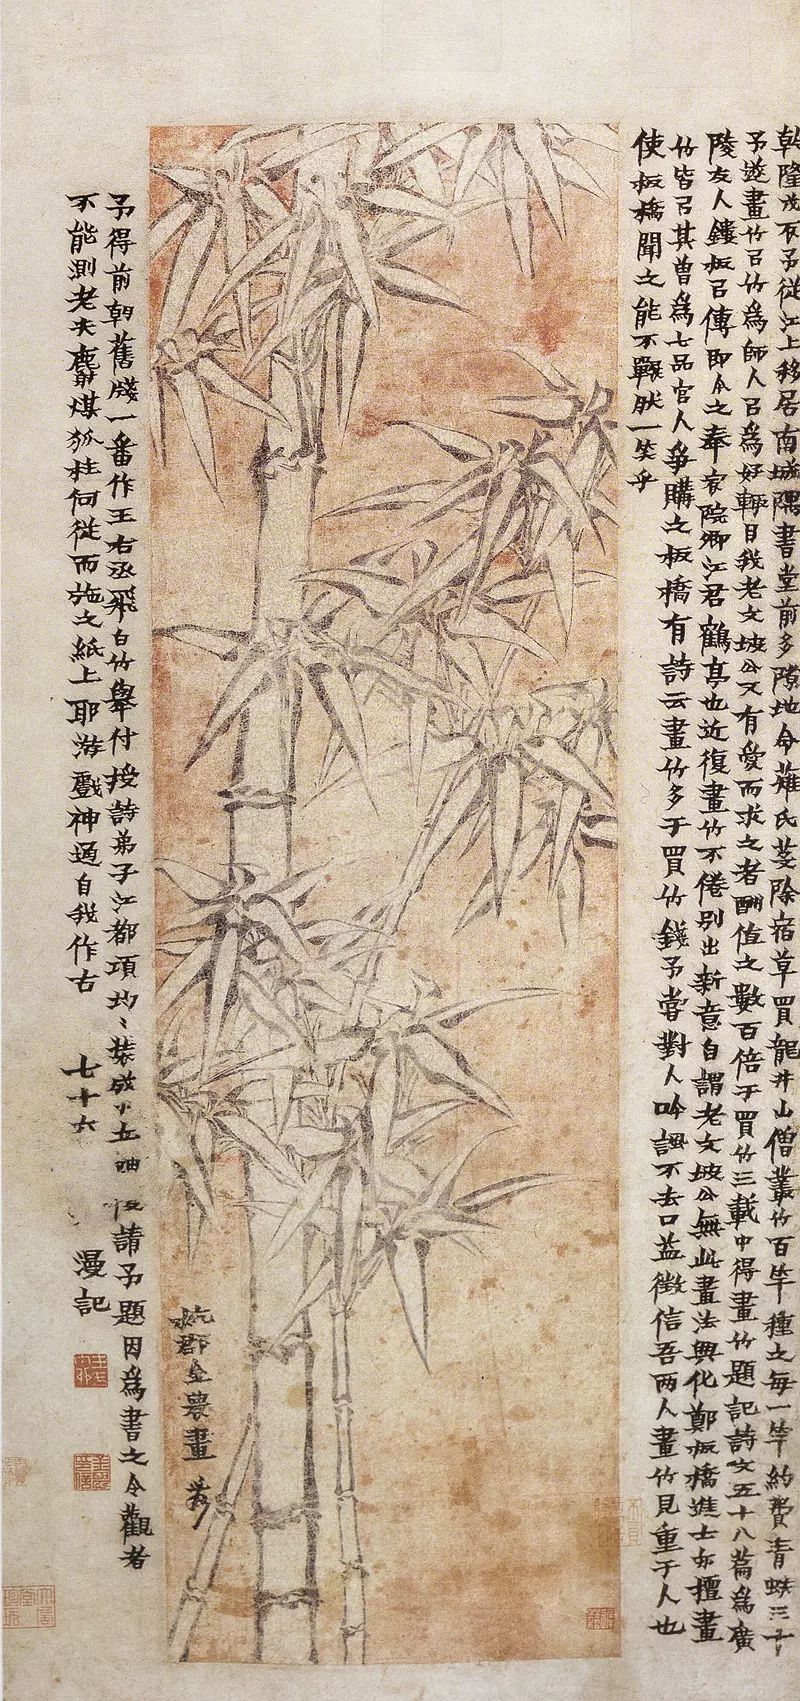 乾隆戊辰予從江上移居南城隅書堂前多隙地令薙氏芟除宿草買龍井山僧叢竹百竿種之每一竿約費青蚨三十
予遂畫竹㠯竹為師人㠯為好輒目我老文坡公又有愛而求之者酬值之數百倍于買竹三載中得畫竹題記詩文五十八篇為廣
陵友人鏤板㠯傳即今之奉宸院卿江君鶴亭也近復畫竹不倦別出新意自謂老文坡公無此畫法興化鄭板橋進士亦擅畫
竹皆㠯其曾為七品官人爭購之板橋有詩云畫竹多于買竹錢予嘗對人吟諷不去口益徵信吾兩人畫竹見重于人也
使板橋聞之能不囅然一笑乎
杭郡金農畫
予得前朝舊牋一番作王右丞飛白竹舉付授詩弟子江都項均均裝成小立軸復請予題因為書之令觀者
不能測老夫麝煤狐柱何從而施之紙上耶游戲神通自我作古
七十六
漫記